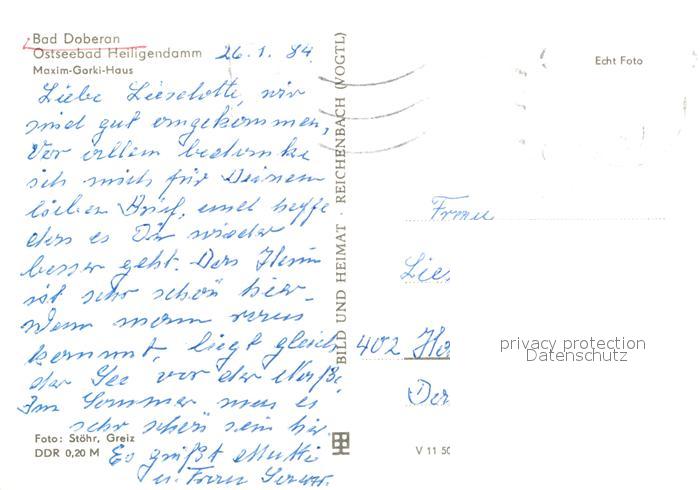 Bad Doberan
Ostseebad Heiligendamm 26.1.84.
Maxim-Gorki-Haus
Liebe Lieselotte, wir
sind gut angekommen,
Vor allem bedanke
ich mich für Deinen
lieben Brief, und hoffe
dass es Dir wieder
besser geht. Das Heim
ist sehr schön hier.
Wenn mann raus
kommt, liegt gleich
der See vor der Nase.
Im Sommer mus es
sehr schön sein hier.
Es grüßt Mutti
u. Frau
Foto: Stöhr, Greiz
DDR 0,20 M
BILD UND HEIMAT · REICHENBACH (VOGTL)
Echt Foto
Frau
Lies
402
privacy protection
Datenschutz
V 11 50